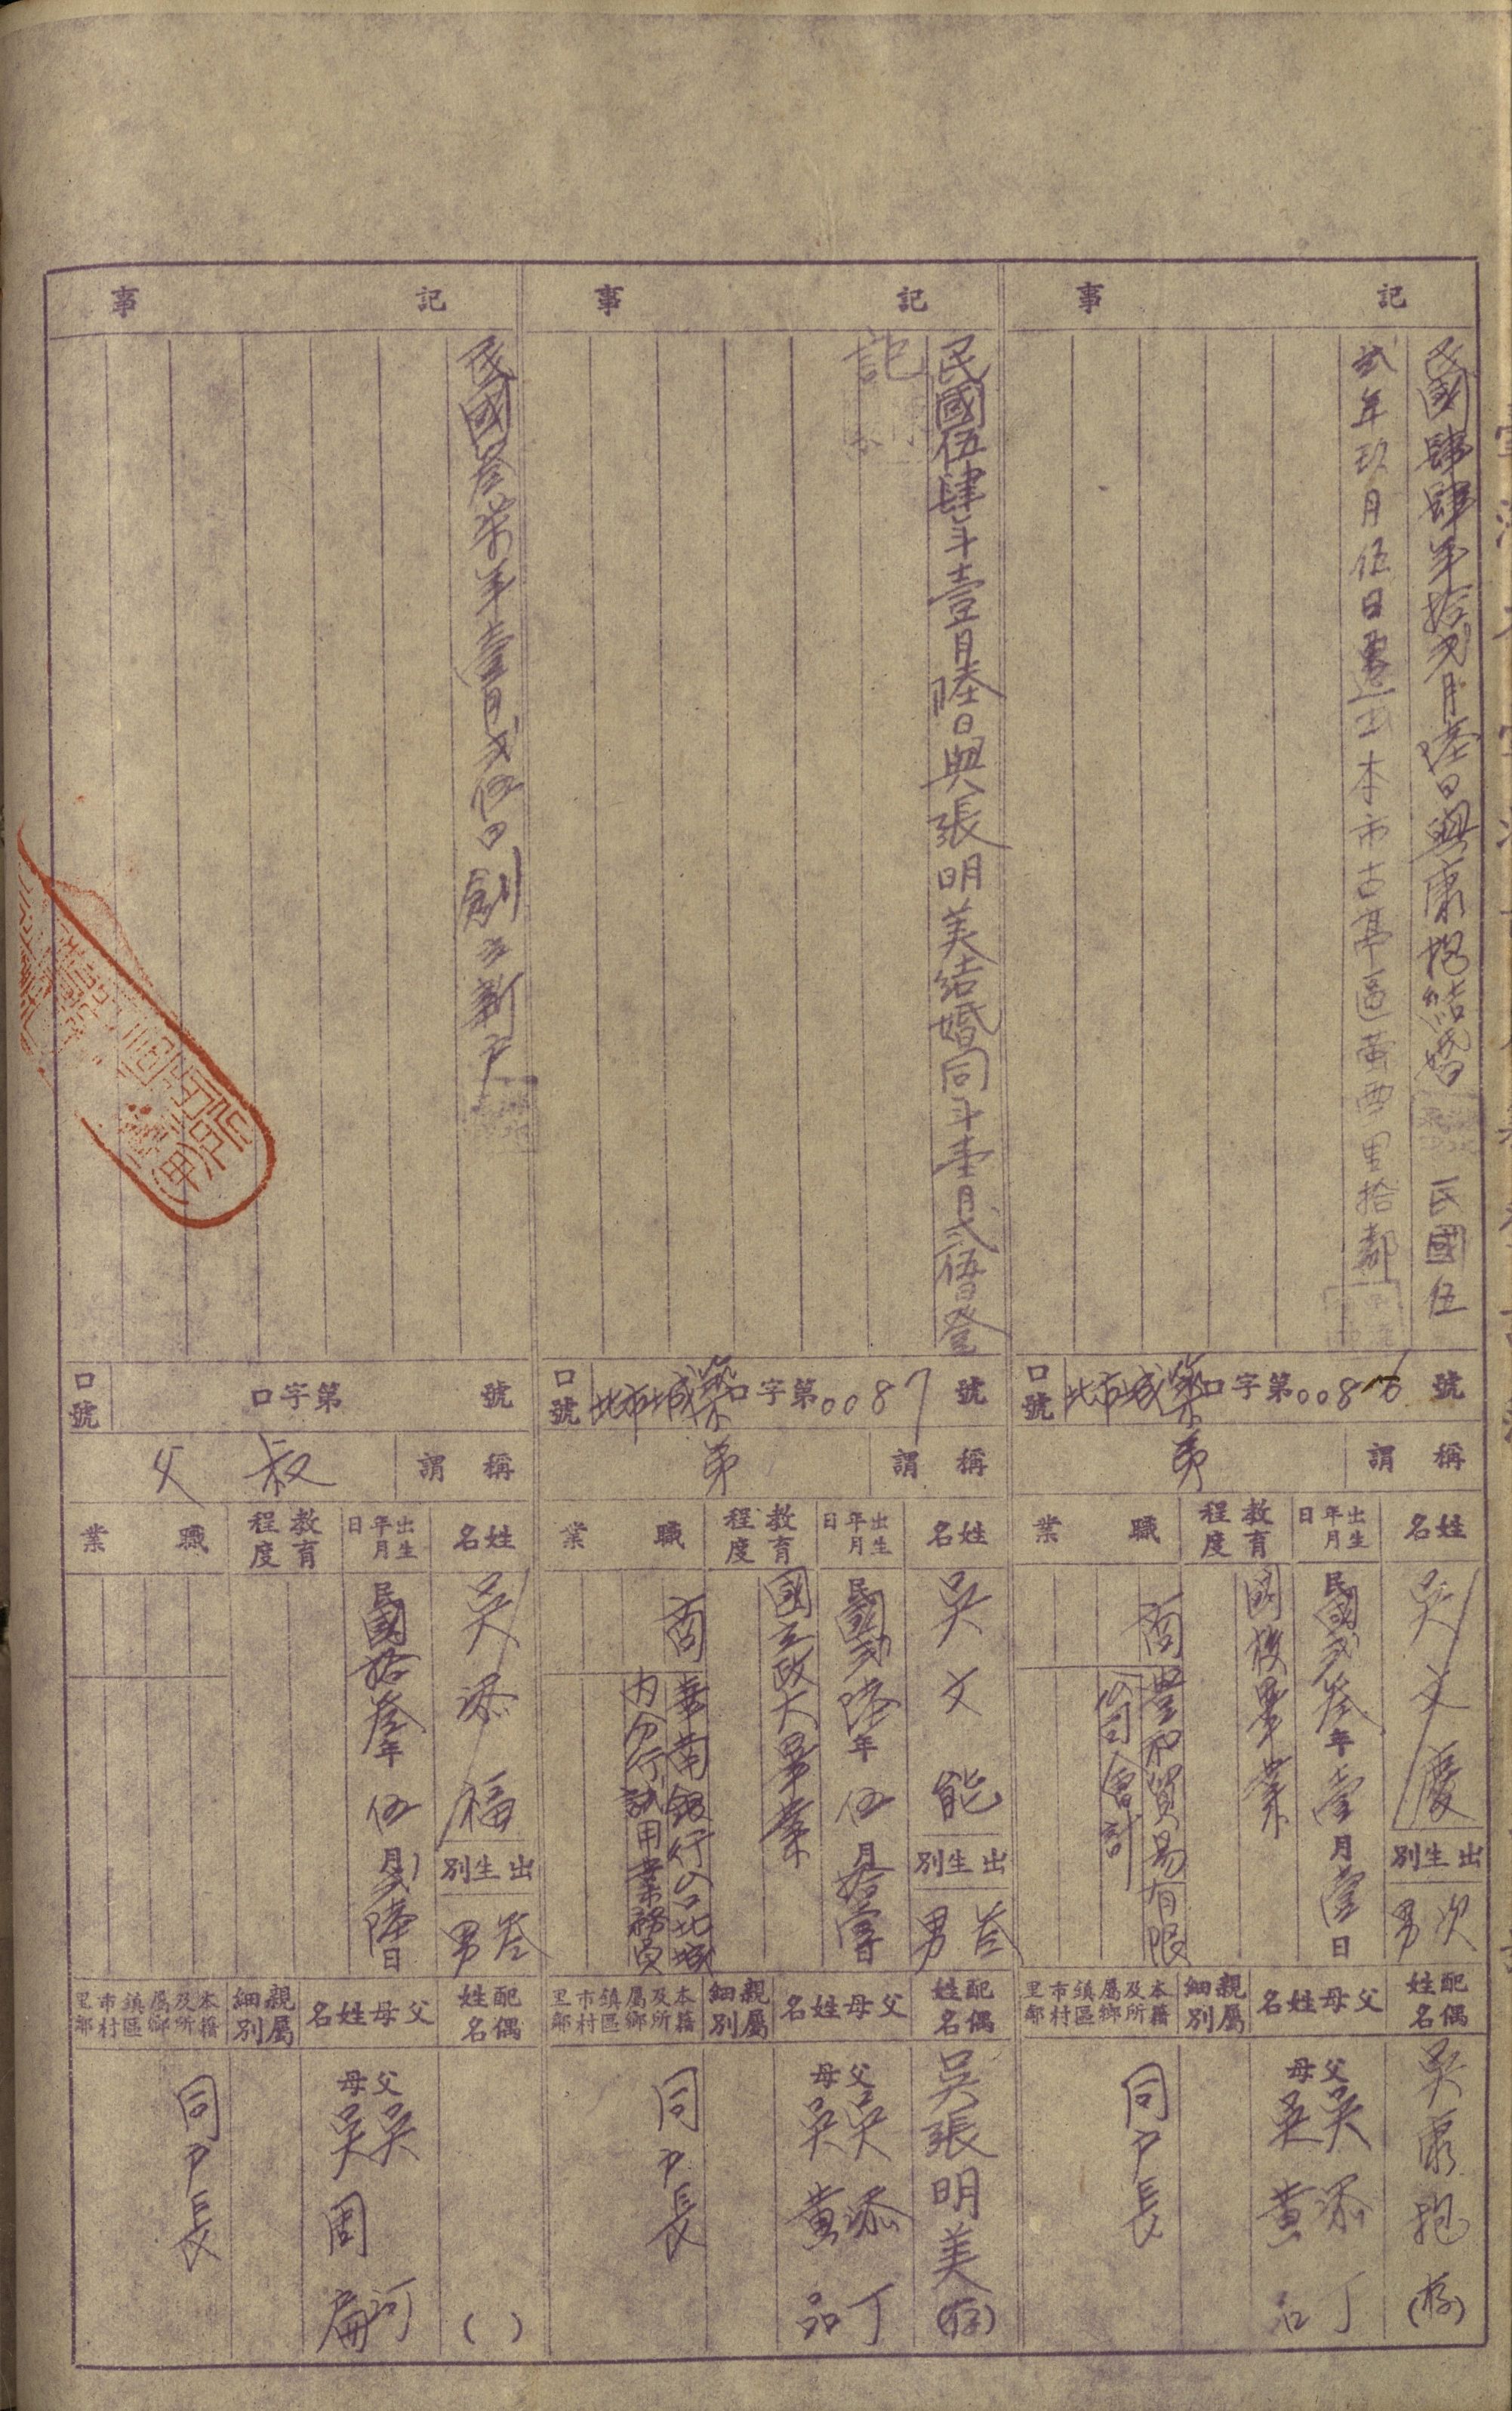 記事
民國肆肆年拾弍月陸日與康抱結婚 民國伍
弍年玖月伍日遷出本市古亭區螢西里拾鄰
口號 北市城築口字第0086號
稱謂 弟
姓名 吳文慶
出生別 次男
出生年月日 民國弍叁年壹月壹日
教育程度 國校畢業
職業 商
豐和貿易有限
公司會計
配偶姓名 吳康抱(存)
父母姓名
父 吳添丁
母 吳黃品
親屬細別
本籍及所屬鄉鎮區市村里鄰 同戶長
記事
民國伍肆年壹月陸日與張明美結婚同年壹月弍伍日登
記
口號 北市城築口字第0087號
稱謂 弟
姓名 吳文能
出生別 叁男
出生年月日 民國弍陸年伍月拾壹日
教育程度 國立政大畢業
職業 商
華南銀行
內分行試用業務員
配偶姓名 吳張明美(存)
父母姓名
父 吳添丁
母 吳黃品
親屬細別
本籍及所屬鄉鎮區市村里鄰 同戶長
記事
民國叁柒年壹月弍伍日創立新戶
口號 口字第 號
稱謂 叔父
姓名 吳添福
出生別 叁男
出生年月日 民國拾叁年伍月弍陸日
教育程度
職業
配偶姓名 ( )
父母姓名
父 吳河
母 吳周扁
親屬細別
本籍及所屬鄉鎮區市村里鄰 同戶長